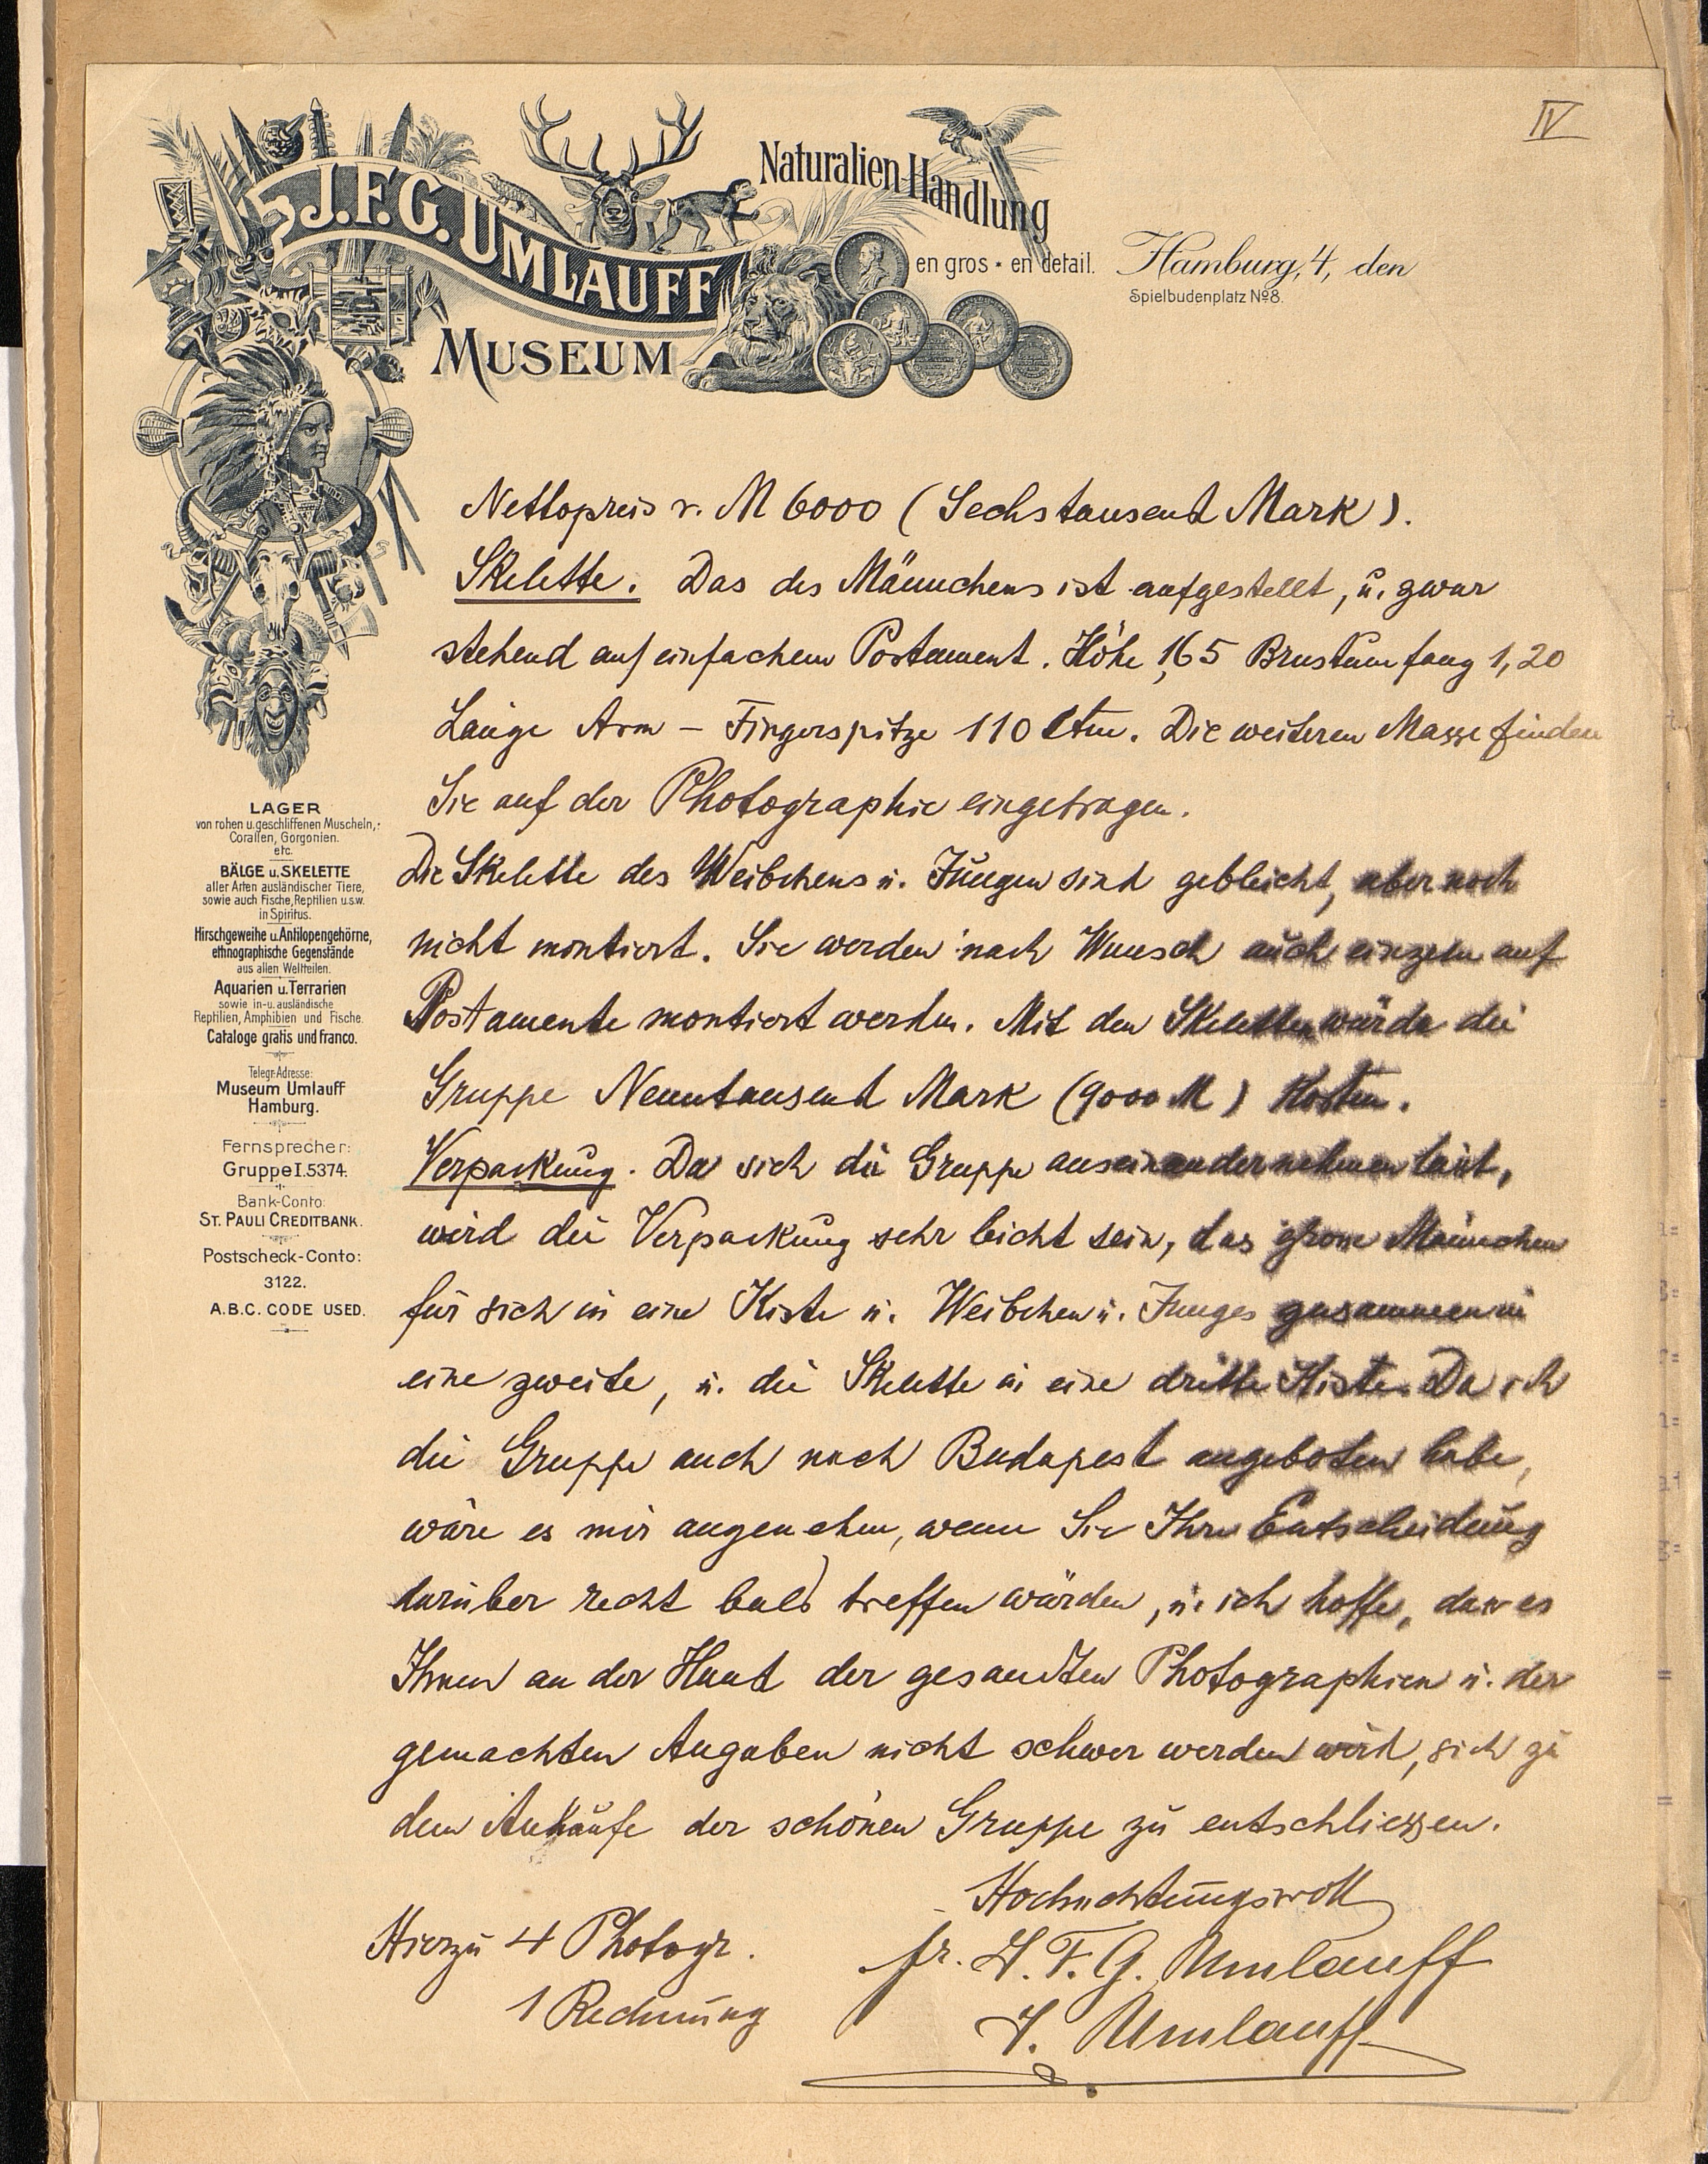 IV
J.F.G. UMLAUFF
MUSEUM
Naturalien-Handlung
en gros • en detail.
Hamburg, 4, den
Spielbudenplatz No 8.
LAGER
von rohen u. geschliffenen Muscheln,
Corallen, Gorgonien.
etc.
BÄLGE u. SKELETTE
aller Arten ausländischer Tiere,
sowie auch Fische, Reptilien u.s.w.
in Spiritus.
Hirschgeweihe u. Antilopengehörne,
ethnographische Gegenstände
aus allen Weltteilen.
Aquarien u. Terrarien
sowie in- u. ausländische
Reptilien, Amphibien und Fische.
Cataloge gratis und franco.
Telegr.-Adresse:
Museum Umlauff
Hamburg.
Fernsprecher:
Gruppe I. 5374.
Bank-Conto:
ST. PAULI CREDITBANK.
Postscheck-Conto:
3122.
A.B.C. CODE USED.
Nettopreis v. M 6000 (Sechstausend Mark).
Skelette. Das des Männchens ist aufgestellt, u. zwar
stehend auf einfachem Postament. Höhe 1,65 Brustumfang 1,20
Länge Arm – Fingerspitze 110 Ctm. Die weiteren Masse finden
Sie auf der Photographie eingetragen.
Die Skelette des Weibchens u. Jungen sind gebleicht, aber noch
nicht montiert. Sie werden nach Wunsch auch einzeln auf
Postamente montiert werden. Mit den Skeletten würde die
Gruppe Neuntausend Mark (9000 M) kosten.
Verpackung. Da sich die Gruppe auseinandernehmen lässt,
wird die Verpackung sehr leicht sein, das grosse Männchen
für sich in eine Kiste u. Weibchen u. Junges zusammen in
eine zweite, u. die Skelette in eine dritte Kiste. Da ich
die Gruppe auch nach Budapest angeboten habe,
wäre es mir angenehm, wenn Sie Ihre Entscheidung
darüber recht bald treffen würden, u. ich hoffe, dass es
Ihnen an der Hand der gesandten Photographien u. der
gemachten Angaben nicht schwer werden wird, sich zu
dem Ankaufe der schönen Gruppe zu entschliessen.
Hochachtungsvoll
fr. J. F. G. Umlauff
J. Umlauff
Hierzu 4 Photogr.
1 Rechnung